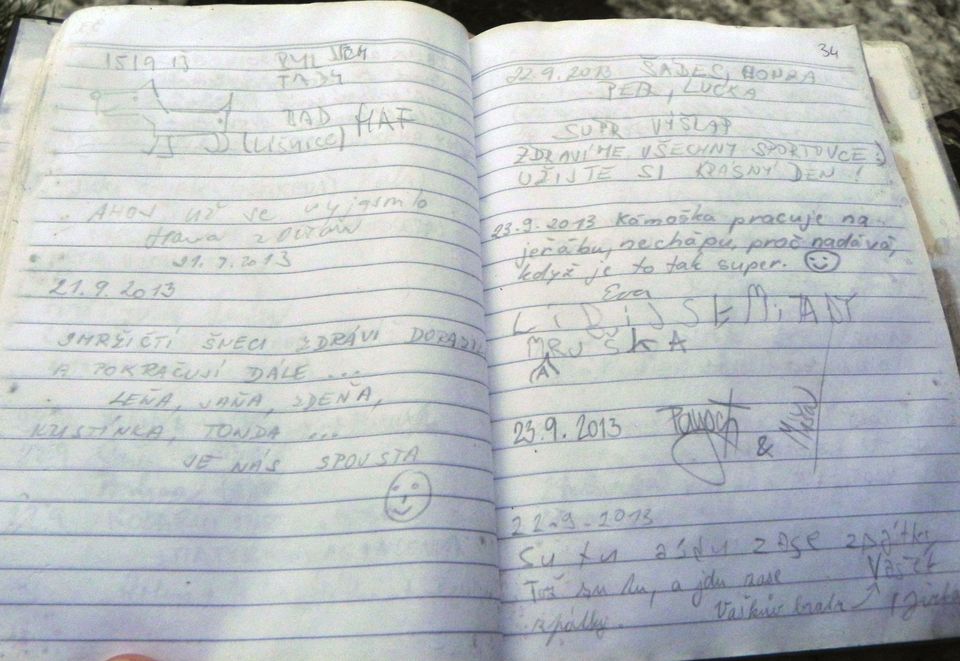 15/9 13 BYL JSEM
TADY
RAD HAF
(LIŠNICE)
AHOJ UŽ SE vyjasnilo
Hana z
21.9.2013
21.9.2013
SMRŽIČTÍ ŠNECI ZDRÁVI DORAZILI
A POKRAČUJÍ DÁLE ...
LEŇA, JAŇA, ZDEŇA,
KRISTÍNKA, TONDA ...
JE NÁS SPOUSTA
34
22.9.2013 SADEC, HONZA
PETR, LUCKA
SUPR VÝŠLAP
ZDRAVÍME VŠECHNY SPORTOVCE :)
UŽIJTE SI KRÁSNÝ DEN !
23.9.2013 Kámoška pracuje na
jeřábu, nechápu, proč nadává,
když je to tak super.
Eva
LIDI JSEM TADY
MRUŠKA
23.9.2013 & Míša
22.9.2013
Su tu a jdu zase zpátky
Toš su tu, a jdu zase Vašek
zpátky. Vaškův bratr Jirka